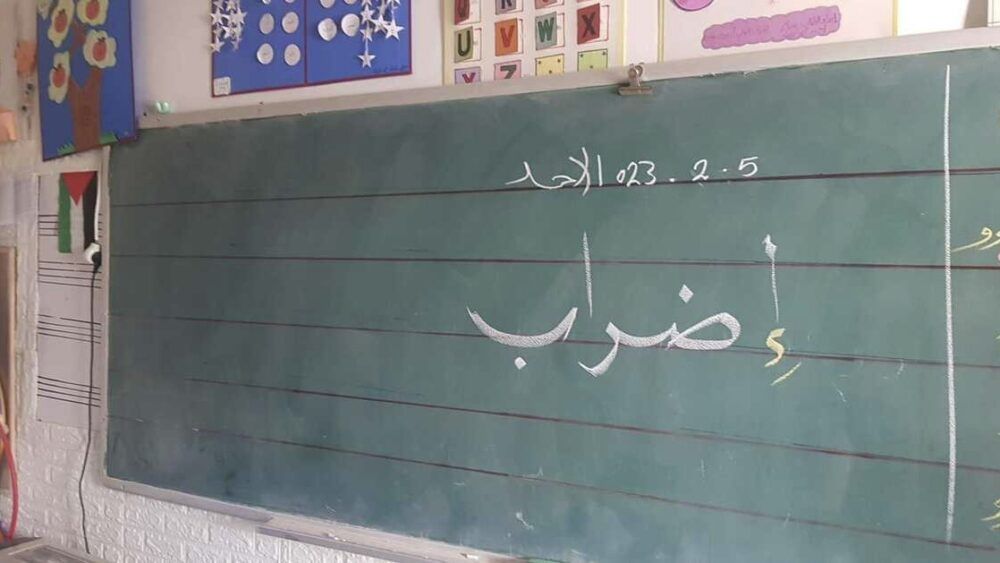 U V W X
Y Z
5 . 2 . 023 الاحد
إضراب